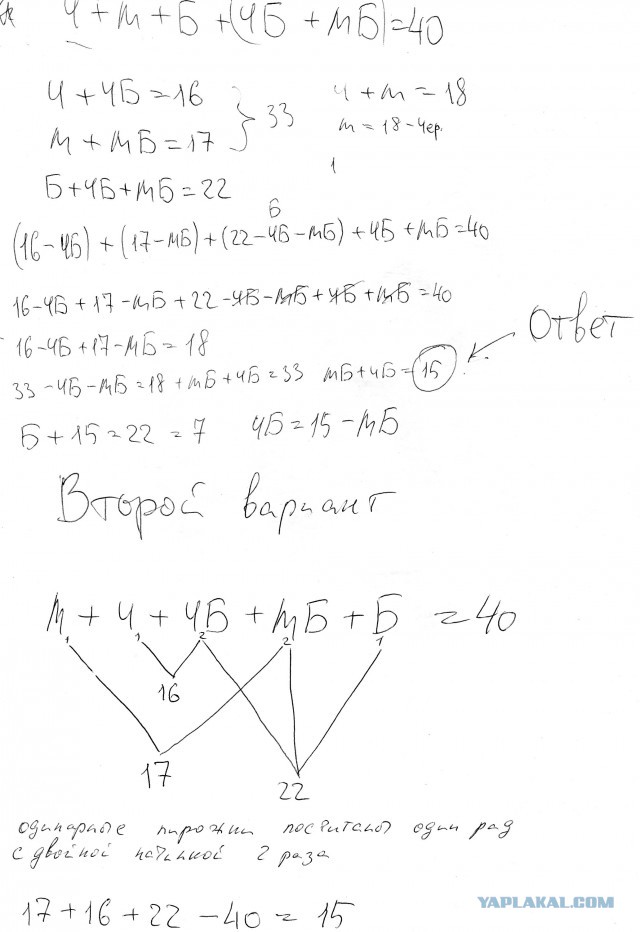 Ч + М + Б + (ЧБ + МБ) = 40
Ч + ЧБ = 16
М + МБ = 17
} 33
Ч + М = 18
М = 18 - Чер.
1
Б + ЧБ + МБ = 22
Б
(16 - ЧБ) + (17 - МБ) + (22 - ЧБ - МБ) + ЧБ + МБ = 40
16 - ЧБ + 17 - МБ + 22 - ЧБ - МБ + ЧБ + МБ = 40
16 - ЧБ + 17 - МБ = 18
Ответ
33 - ЧБ - МБ = 18 + МБ + ЧБ = 33 МБ + ЧБ = 15
Б + 15 = 22 = 7 ЧБ = 15 - МБ
Второй вариант
М + Ч + ЧБ + МБ + Б = 40
1 1 2 2 1
16
17
22
одинарные пирожки посчитаны один раз
с двойной начинкой 2 раза
17 + 16 + 22 - 40 = 15
YAPLAKAL.COM